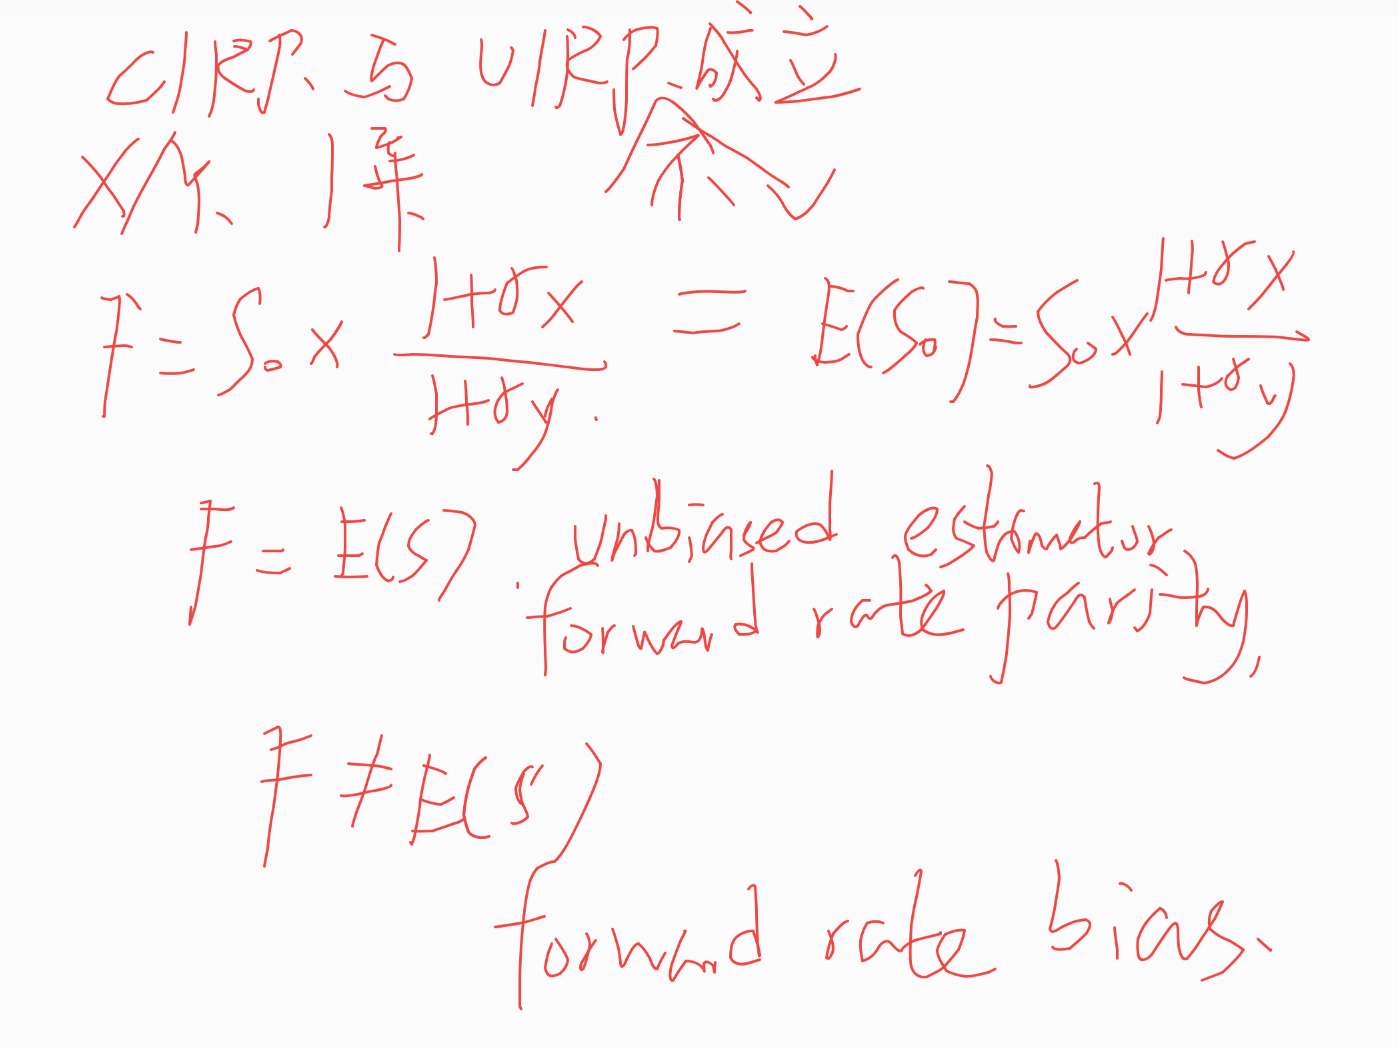 CIRP、与 UIRP、成立
F = S₀ × (1+rx)/(1+ry). = E(S₀) = S₀ × (1+rx)/(1+ry)
F = E(S). unbiased estimator
forward rate parity,
F ≠ E(S)
forward rate bias.